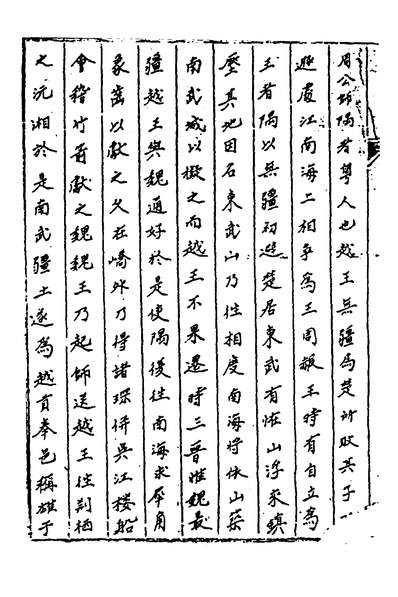 周公師隅者粵人也越王無疆為楚所敗其子
遯處江南海上相爭為王周赧王時有自立為
王者隅以無疆初避楚居東武有怪山浮來鎮
壓其地因名東武山乃往相度南海將依山築
南武城以擬之而越王不果遷時三晉惟魏最
疆越王與魏通好於是使隅復往南海求犀角
象齒以獻之久在嶠外乃得諸琛併吳江樓船
會稽竹箭獻之魏魏王乃起師送越王往荊栖
之沅湘於是南武疆土遂為越貢奉邑稱雄于